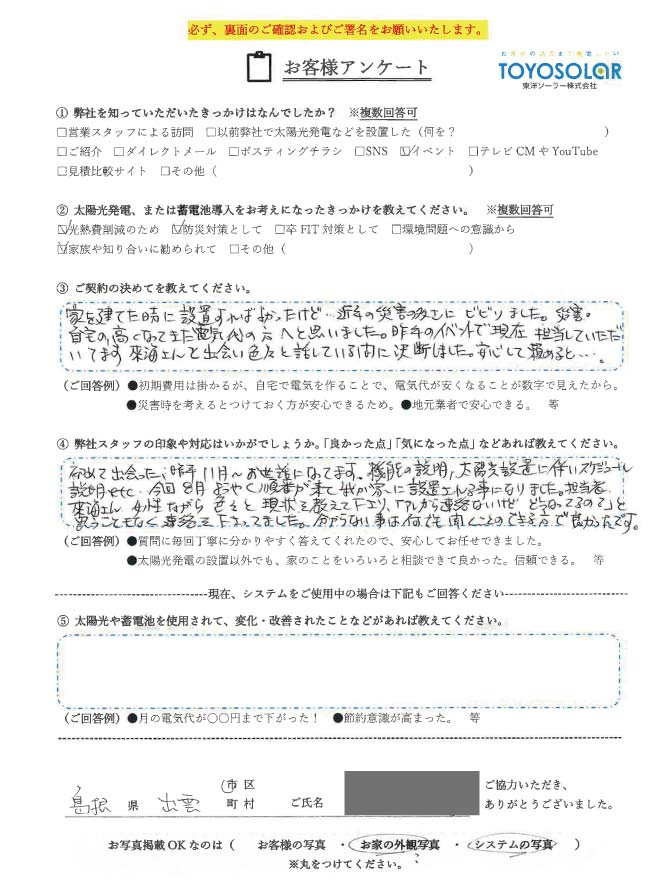 必ず、裏面のご確認およびご署名をお願いいたします。
お客様アンケート
TOYOSOLAR
東洋ソーラー株式会社
① 弊社を知っていただいたきっかけはなんでしたか？　※複数回答可
□営業スタッフによる訪問　□以前弊社で太陽光発電などを設置した（何を？　　　）
□ご紹介　□ダイレクトメール　□ポスティングチラシ　□SNS　☑イベント　□テレビCMやYouTube
□見積比較サイト　□その他（　　　）
② 太陽光発電、または蓄電池導入をお考えになったきっかけを教えてください。　※複数回答可
☑光熱費削減のため　☑防災対策として　□卒FIT対策として　□環境問題への意識から
☑家族や知り合いに勧められて　□その他（　　　）
③ ご契約の決めてを教えてください。
家を建てた時に設置すればよかったけど…近年の災害の多さにビビりました。災害。
自宅の高くなってきた電気代の方へと思いました。昨年のイベントで現在 担当していただ
いてます 来海さんと出会い色々と話している内に決断しました。安心して 頼めると…。
（ご回答例）●初期費用は掛かるが、自宅で電気を作ることで、電気代が安くなることが数字で見えたから。
●災害時を考えるとつけておく方が安心できるため。●地元業者で安心できる。　等
④ 弊社スタッフの印象や対応はいかがでしょうか。「良かった点」「気になった点」などあれば教えてください。
初めて出会った、昨年11月〜お世話になってます。機能の説明、太陽光設置に伴いスケジュール
説明etc. 今回8月ようやく順番が来て我が家に設置される事になりました。担当者
来海さん 女性ながら 色々と 現状を教えて下さり、「アレから連絡ないけど どうなってるの?」と
思うこともなく連絡を下さってました。分からない事は何でも聞くことのできる方で良かったです。
（ご回答例）●質問に毎回丁寧に分かりやすく答えてくれたので、安心してお任せできました。
●太陽光発電の設置以外でも、家のことをいろいろと相談できて良かった。信頼できる。　等
現在、システムをご使用中の場合は下記もご回答ください
⑤ 太陽光や蓄電池を使用されて、変化・改善されたことなどがあれば教えてください。
（ご回答例）●月の電気代が〇〇円まで下がった！　●節約意識が高まった。　等
島根 県　出雲　市 区 町 村　ご氏名　ご協力いただき、
ありがとうございました。
お写真掲載OKなのは（　お客様の写真　・　お家の外観写真　・　システムの写真　）
※丸をつけてください。